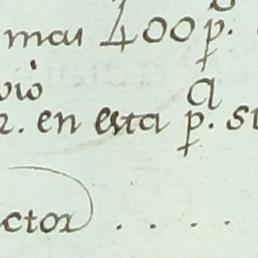 mas 400 p.
vio a
r. en esta p. su
ctor . . . .